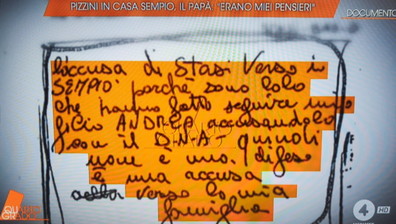 PIZZINI IN CASA SEMPIO, IL PAPÀ "ERANO MIEI PENSIERI"
DOCUMENTO
l'accusa di STASI verso i
SEMPIO perché sono loro
che hanno fatto seguire mio
figlio ANDREA accusandolo
con il D.N.A. quindi
non è una difesa
è una accusa
verso la mia
famiglia
QUARTO
GRADO
4
HD